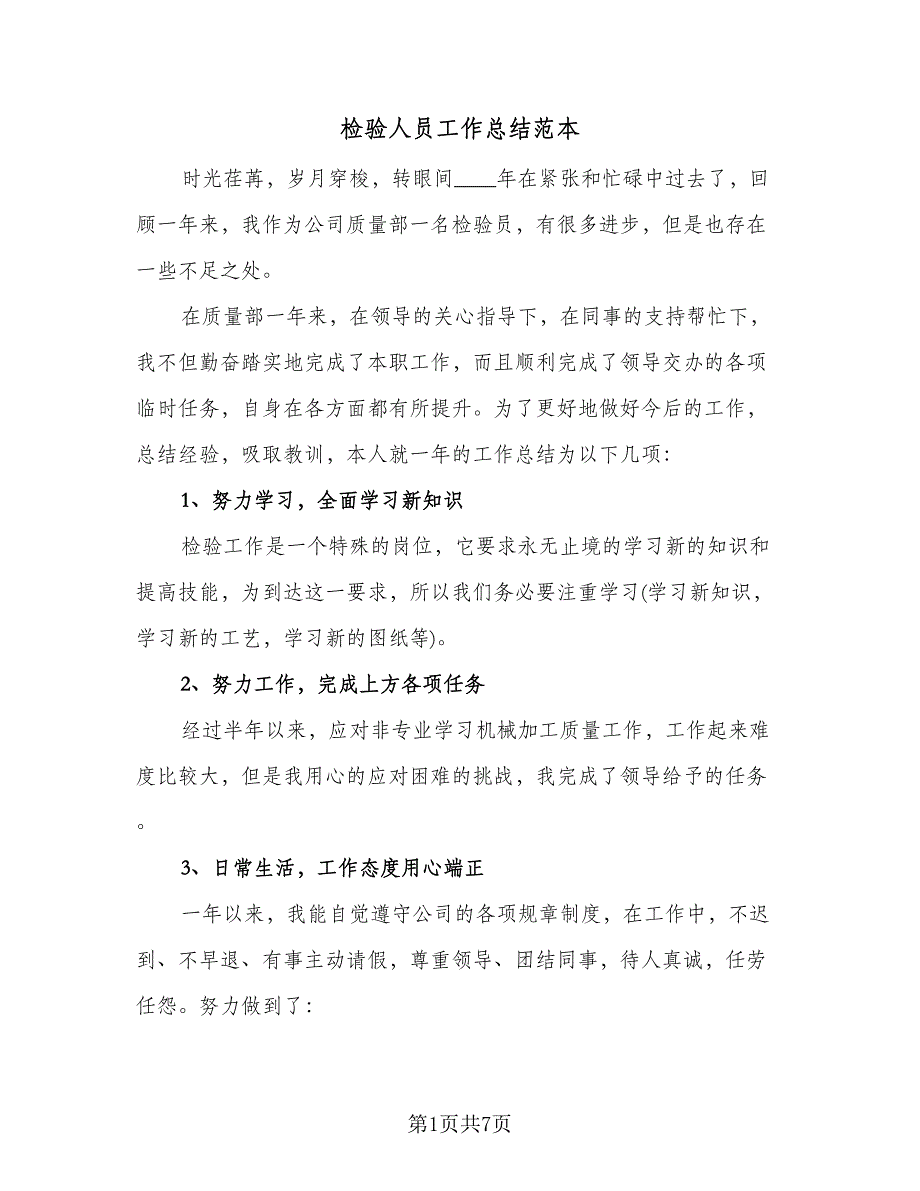 检验人员工作总结范本
时光荏苒，岁月穿梭，转眼间____年在紧张和忙碌中过去了，回
顾一年来，我作为公司质量部一名检验员，有很多进步，但是也存在
一些不足之处。
在质量部一年来，在领导的关心指导下，在同事的支持帮忙下，
我不但勤奋踏实地完成了本职工作，而且顺利完成了领导交办的各项
临时任务，自身在各方面都有所提升。为了更好地做好今后的工作，
总结经验，吸取教训，本人就一年的工作总结为以下几项：
1、努力学习，全面学习新知识
检验工作是一个特殊的岗位，它要求永无止境的学习新的知识和
提高技能，为到达这一要求，所以我们务必要注重学习(学习新知识，
学习新的工艺，学习新的图纸等)。
2、努力工作，完成上方各项任务
经过半年以来，应对非专业学习机械加工质量工作，工作起来难
度比较大，但是我用心的应对困难的挑战，我完成了领导给予的任务
。
3、日常生活，工作态度用心端正
一年以来，我能自觉遵守公司的各项规章制度，在工作中，不迟
到、不早退、有事主动请假，尊重领导、团结同事，待人真诚，任劳
任怨。努力做到了：
第1页共7页